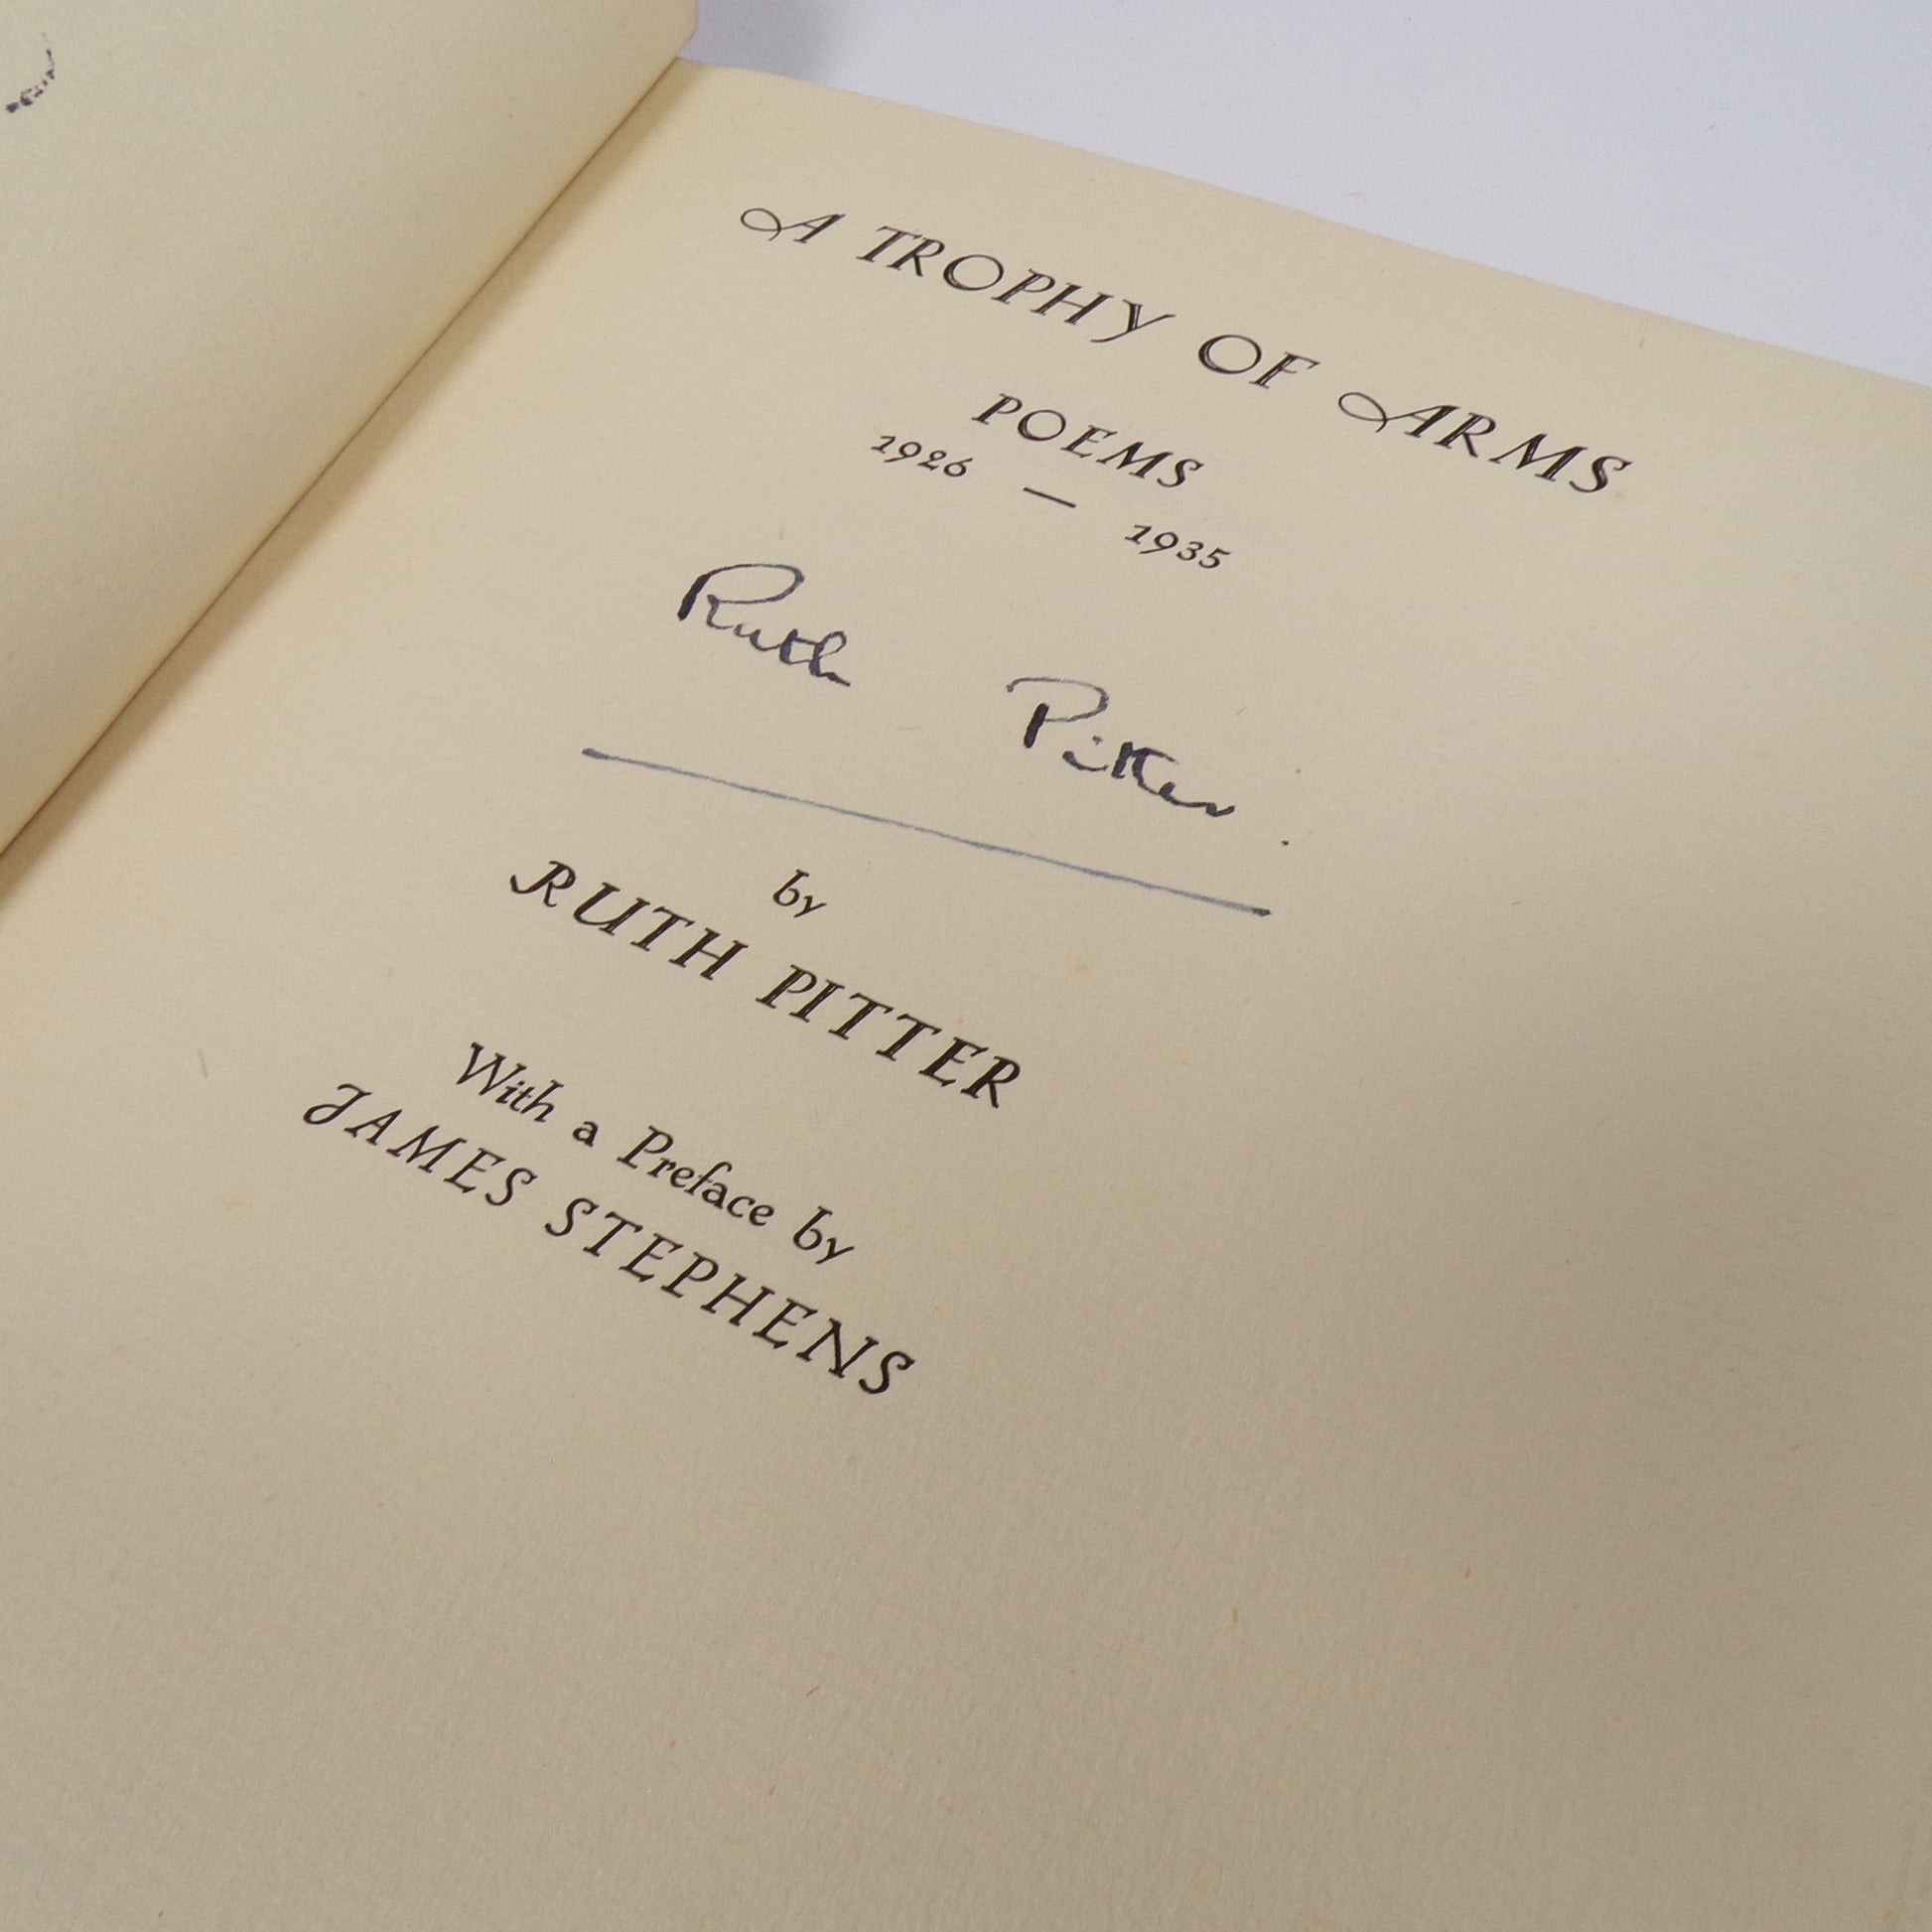 A TROPHY OF ARMS
POEMS
1926 — 1935
Ruth Pitter.
by
RUTH PITTER
With a Preface by
JAMES STEPHENS